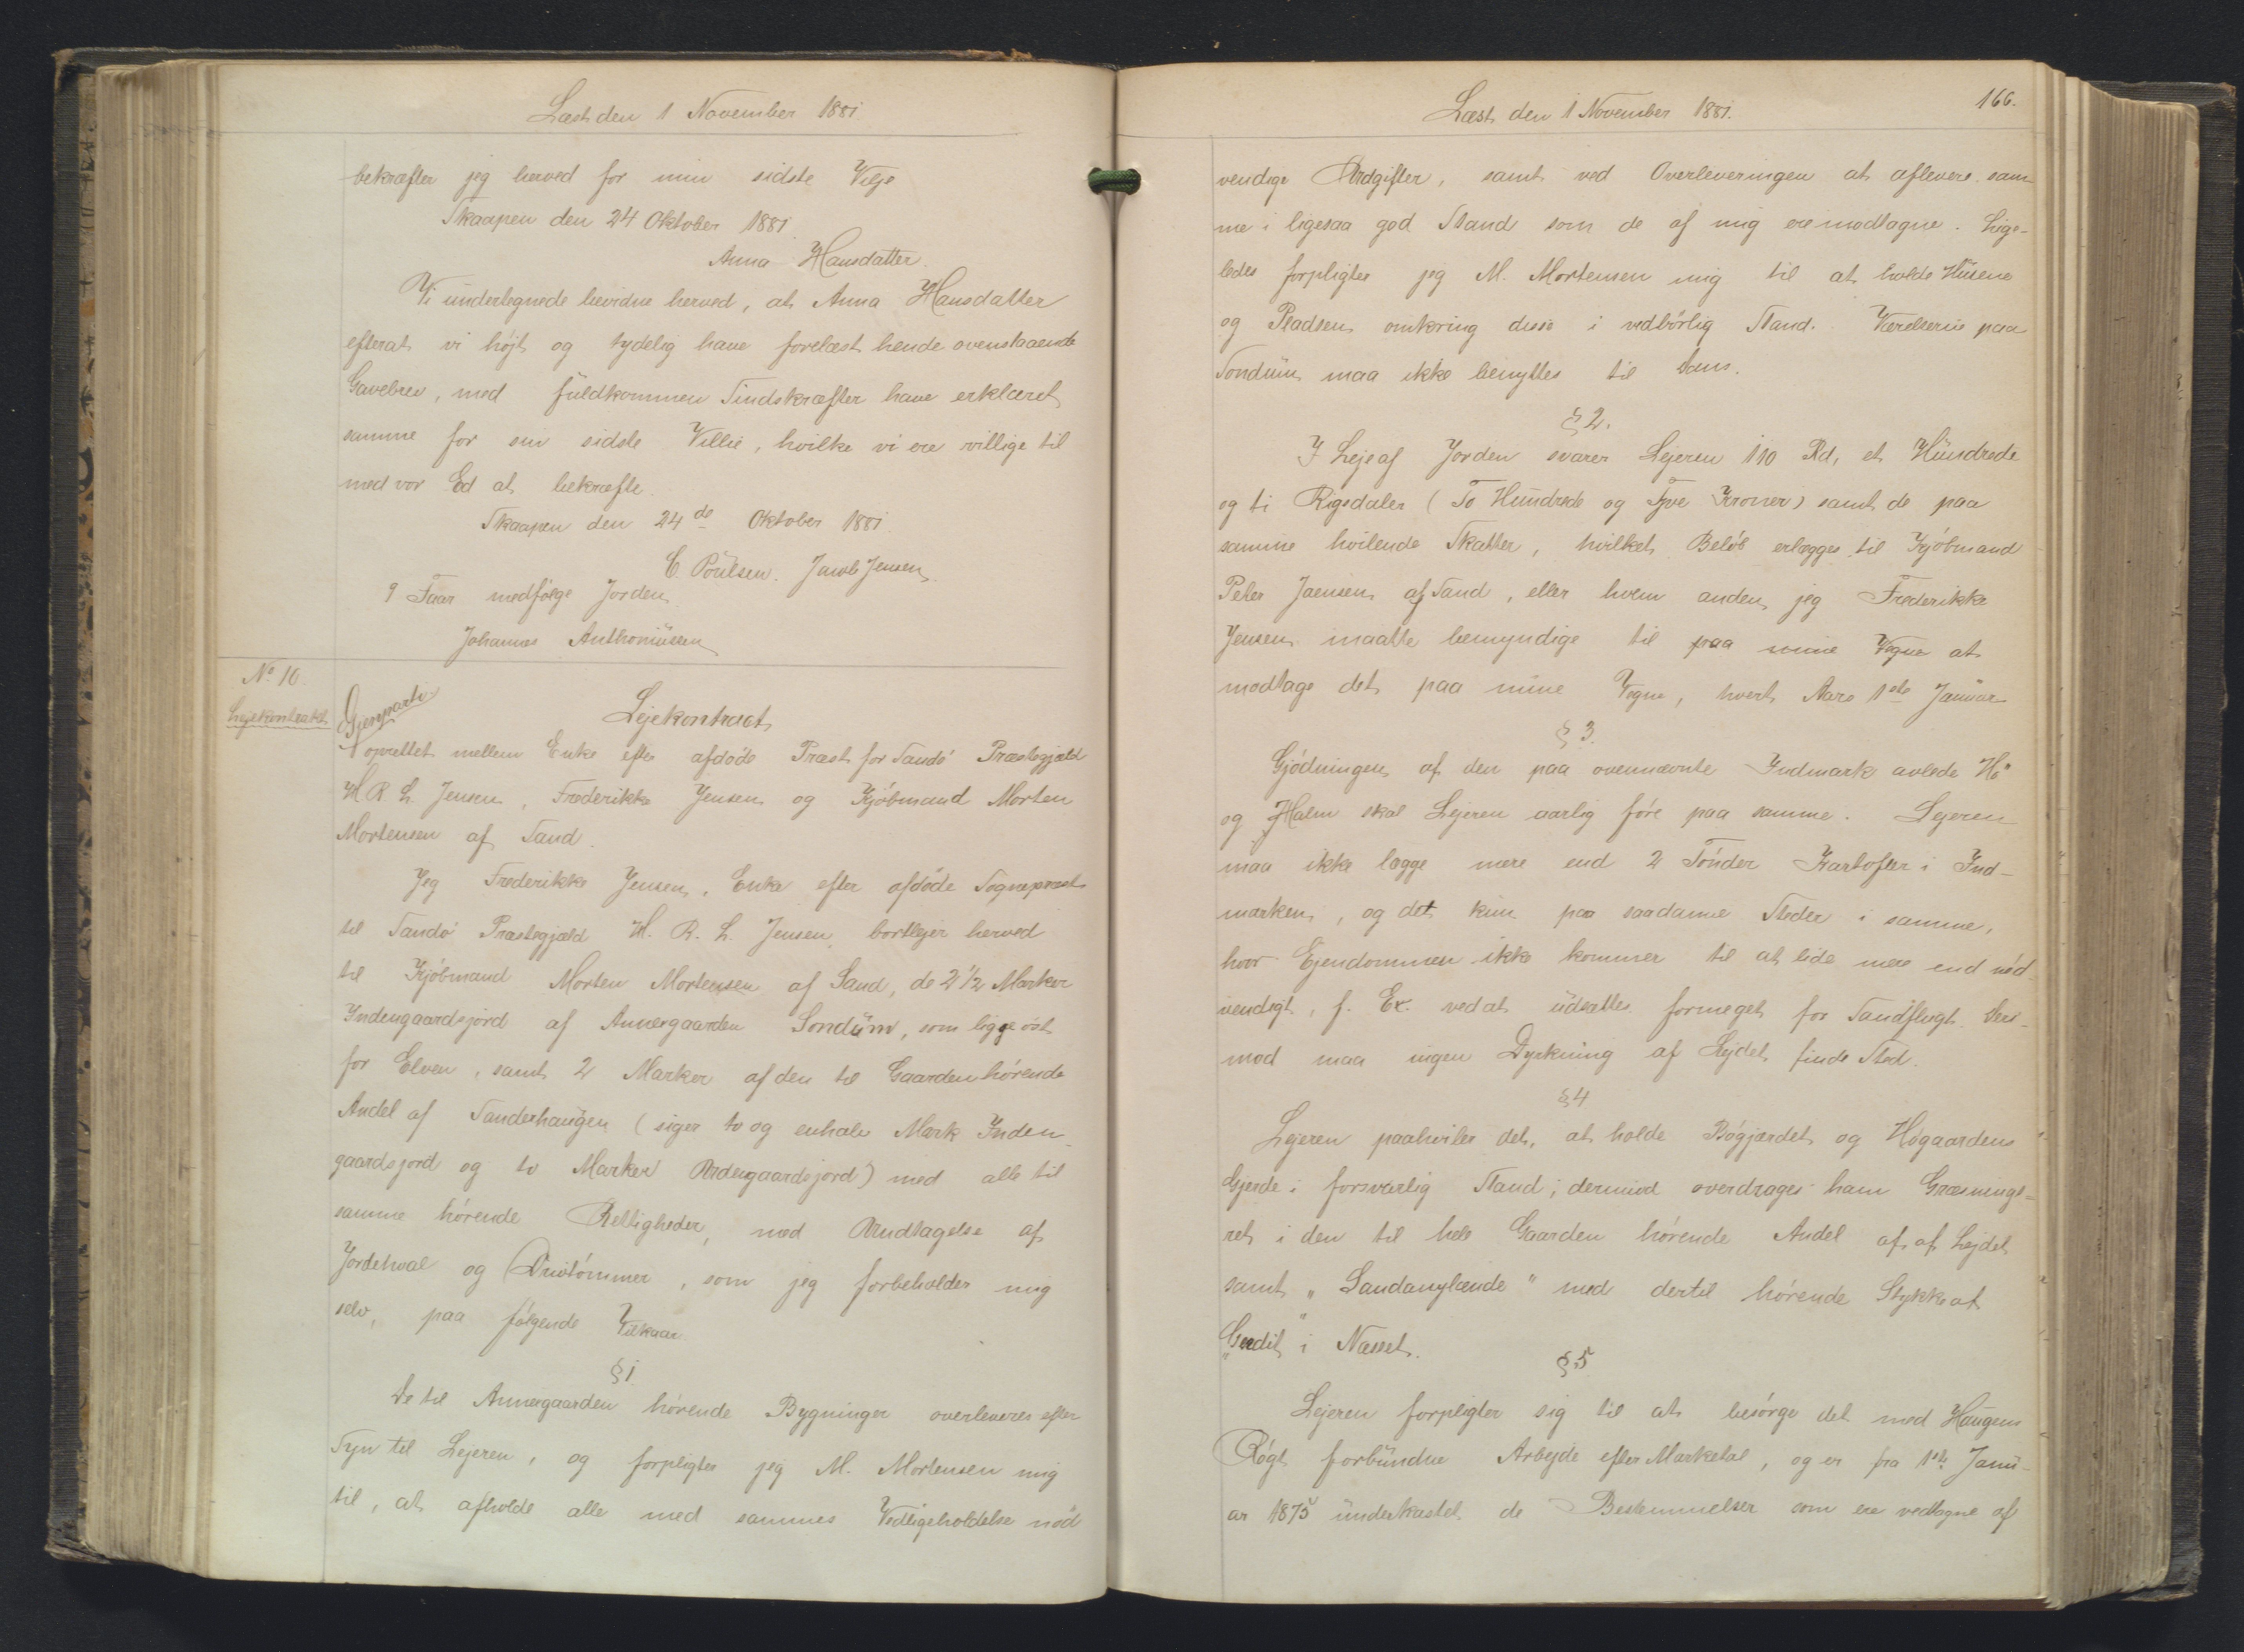 Læst den 1 November 1881
bekræfter jeg herved for min sidste Vilje
Skaapen den 24 Oktober 1881
Anna Hansdatter.
Vi underlegnede bevidne herved, at Anna Hansdatter
efterat vi højt og tydelig have forelæst hende ovenstaaende
Gavebrev, med fuldkommen Sindskræfter have erklæret
samme for sin sidste Villie, hvilke vi ere villige til
med vor Ed at bekræfte.
Skaapen den 24de Oktober 1881
C. Poulsen. Jacob Jensen
9 Faar medfølge Jorden
Johannes Anthoniusen
No 10.
Lejekontrakt
Gjenpart
Lejekontract
oprettet mellem Enke efter afdøde Præst for Sandø Præstegjæld
H. R. L. Jensen, Frederikke Jensen og Kjøbmand Morten
Mortensen af Sand.
Jeg Frederikke Jensen, Enke efter afdøde Sognepræst
til Sandø Præstegjæld H. R. L. Jensen, bortlejer herved
til Kjøbmand Morten Mortensen af Sand, de 2 1/2 Marker
Indengaardsjord af Annexgaarden Sondum, som ligge øst
for Elven, samt 2 Marker af den til Gaarden hørende
Andel af Sanderhaugen (siger to og enhalv Mark Inden-
gaardsjord og to Marker Udengaardsjord) med alle til
samme hørende Rettigheder, med Undtagelse af
Jordehval og Drivtømmer, som jeg forbeholder mig
selv, paa følgende Vilkaar
§ 1
De til Annexgaarden hørende Bygninger overleveres efter
Syn til Lejeren, og forpligter jeg M. Mortensen mig
til, at afholde alle med sammes Vedligeholdelse nød
Læst den 1 November 1881.
166.
vendige Udgifter, samt ved Overleveringen at aflevere sam
me i ligesaa god Stand som de af mig ere modtagne. Lige-
ledes forpligter jeg M. Mortensen mig til at holde Husene
og Pladsen omkring disse i vedbørlig Stand. Værelserne paa
Sondum maa ikke benyttes til Dans.
§ 2.
I Leje af Jorden svarer Lejeren 110 Rd, et Hundrede
og ti Rigsdaler (To Hundrede og Tyve Kroner) samt de paa
samme hvilende Skatter, hvilket Beløb erlægges til Kjøbmand
Peter Jaensen af Sand, eller hvem anden jeg Frederikke
Jensen maatte bemyndige til paa mine Vegne at
modtage det paa mine Vegne, hvert Aars 1ste Januar
§ 3.
Gjødningen af den paa ovennævnte Indmark avlede Hø
og Halm skal Lejeren aarlig føre paa samme. Lejeren
maa ikke lægge mere end 2 Tønder Kartofler i Ind-
marken, og det kun paa saadanne Steder i samme,
hvor Ejendommen ikke kommer til at lide mere end nød-
vendigt, f. Ex. ved at udsættes formeget for Sandflugt. Der-
mod maa ingen Dyrkning af Lejdet finde Sted.
§ 4
Lejeren paahviler det, at holde Bøgjærdet og Høgaardens
Gjerde i forsvarlig Stand; dermod overdrages ham Græsnings-
ret i den til hele Gaarden hørende Andel af af Lejdet
samt "Sandanylænde" med dertil hørende Stykke af
"Gerdit" i Næsset.
§ 5
Lejeren forpligter sig til at besørge det med Haugens
Røgt forbundne Arbejde efter Marketal, og er fra 1ste Janu-
ar 1875 underkastet de Bestemmelser som ere vedtagne af